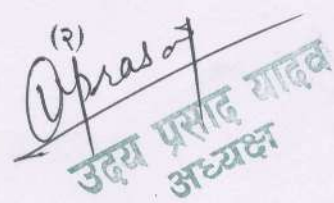 (२)
Uprasad
उदय प्रसाद यादव
अध्यक्ष